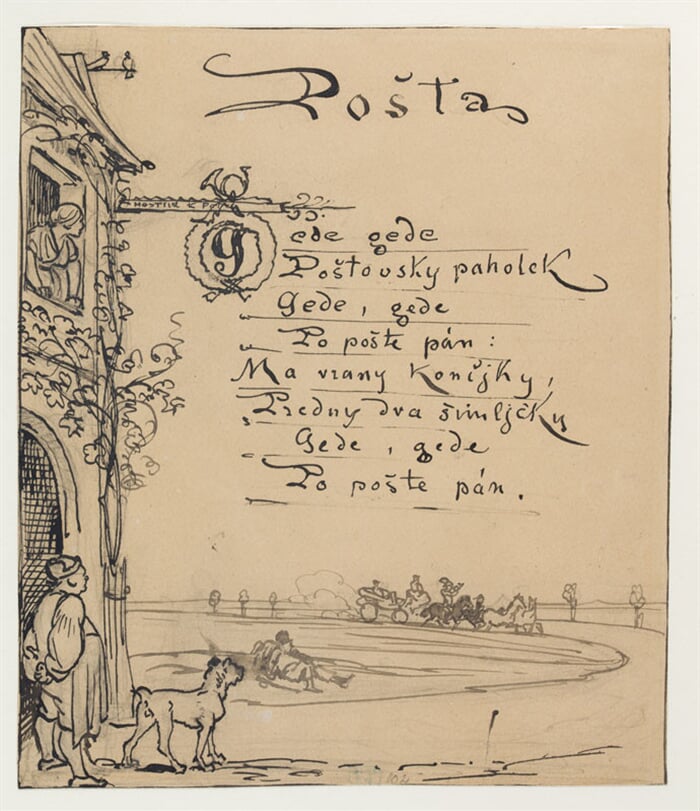 Pošta
Gede gede
Poštovsky paholek
Gede, gede
Po poště pán:
Ma vrany konijky,
Predny dva šimljčky
Gede, gede
Po poště pán.